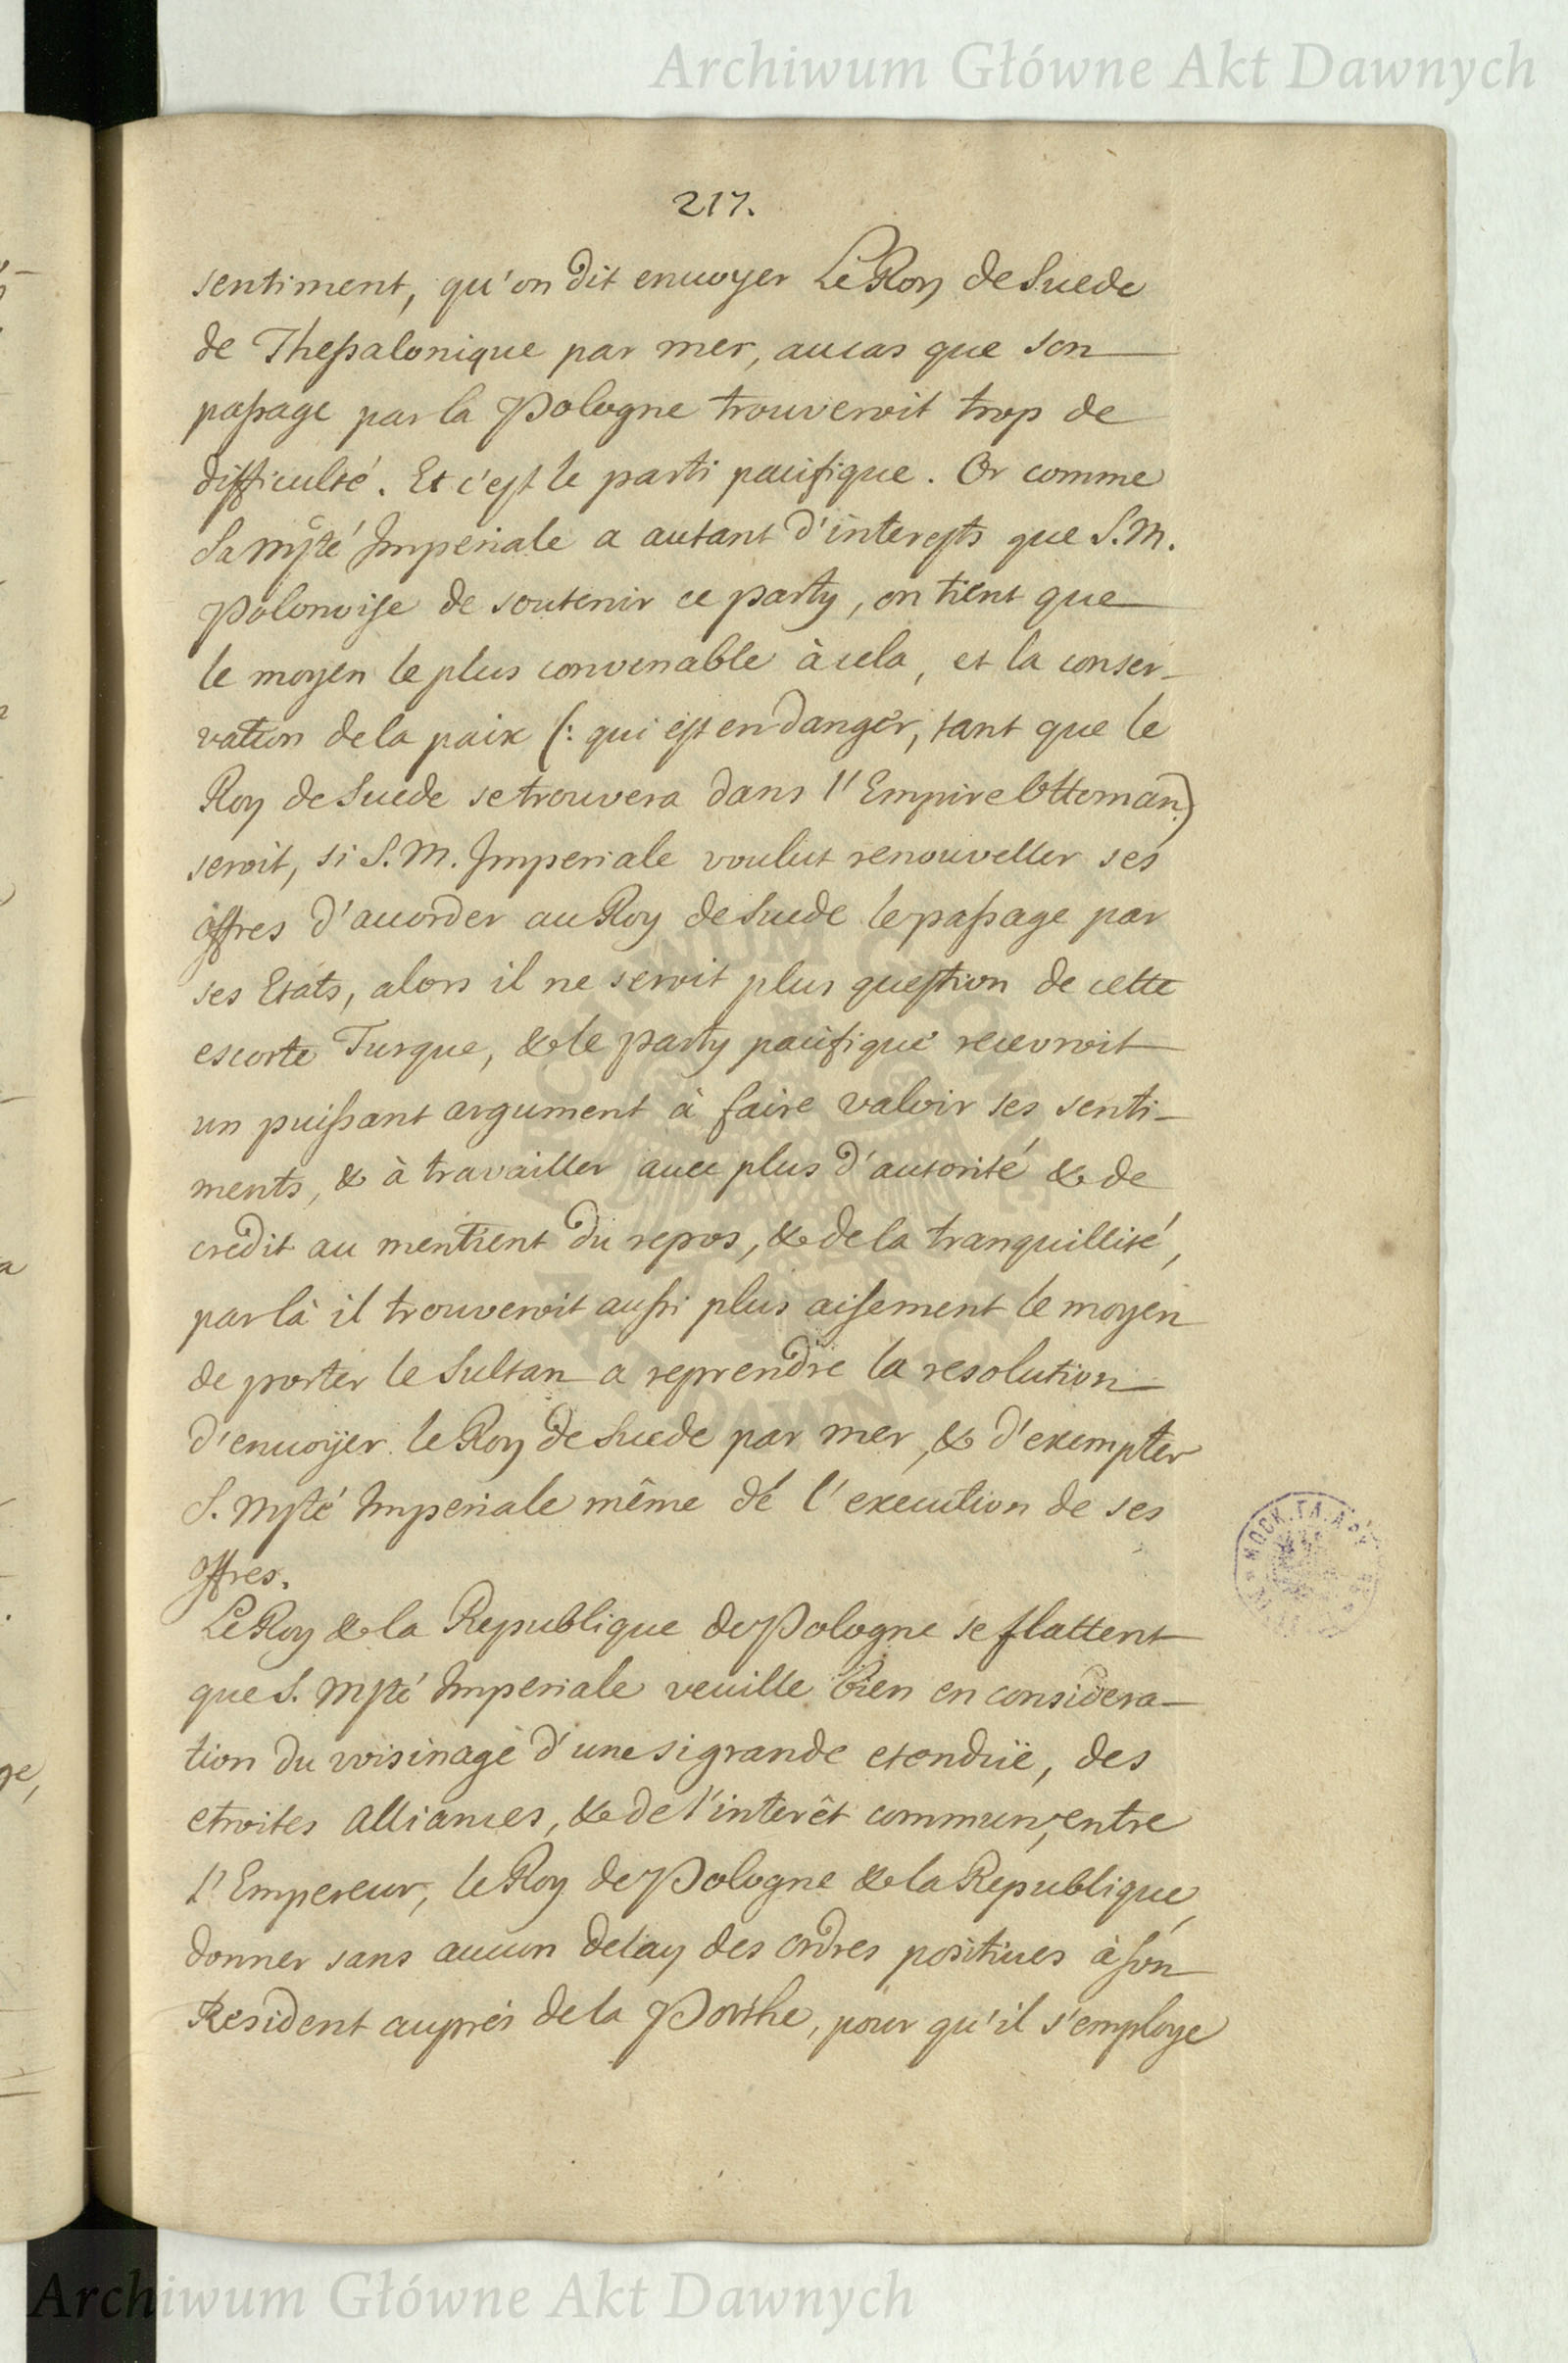 Archiwum Główne Akt Dawnych
217.
sentiment, qu'on dit envoyer Le Roy de Suede
de Thessalonique par mer, au cas que son
passage par la Pologne trouveroit trop de
difficulté. Et c'est le parti pacifique. Or comme
Sa Mjté Imperiale a autant d'interests que S. M.
Polonoise de soutenir ce party, on tient que
le moyen le plus convenable à cela, et la conser-
vation de la paix (: qui est en danger, tant que le
Roy de Suede se trouvera dans l'Empire Ottoman:)
seroit, si S. M. Imperiale voulut renouveller ses
offres d'acorder au Roy de Suede le passage par
ses Etats, alors il ne seroit plus question de cette
escorte Turque, & le party pacifique recevroit
un puissant argument à faire valoir ses senti-
ments, & à travailler avec plus d'autorité & de
credit au mentient du repos, & de la tranquillité,
par là il trouveroit aussi plus aisement le moyen
de porter le Sultan a reprendre la resolution
d'envoÿer le Roy de Suede par mer, & d'exempter
S. Mjté Imperiale même de l'execution de ses
offres.
Le Roy & la Republique de Pologne se flattent
que S. Mjté Imperiale veuille bien en considera-
tion du voisinage d'une si grande etenduë, des
etroites Alliances, & de l'interêt commun, entre
l'Empereur, le Roy de Pologne & la Republique,
donner sans aucun delay des ordres positives à son
Resident auprés de la Porthe, pour qu'il s'employe
Archiwum Główne Akt Dawnych
ARCHIWUM GŁÓWNE
AKT DAWNYCH